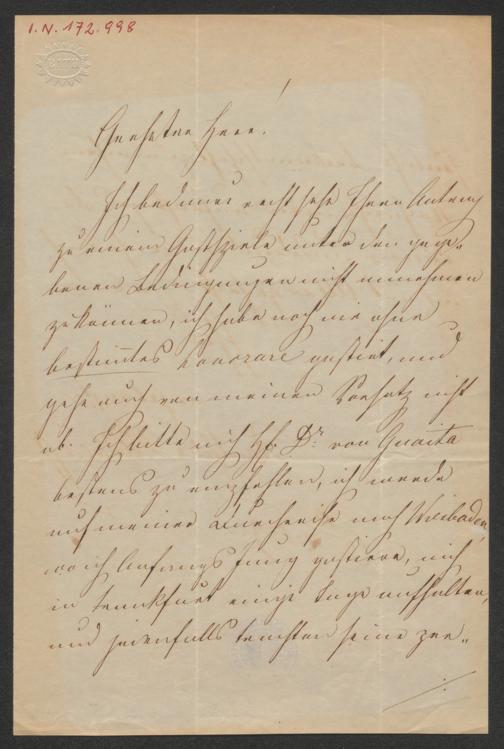 I.N. 172.998
Geehrter Herr!
Ich bedaure recht sehr Ihren Antrag
zu einem Gastspiele unter den gege-
benen Bedingungen nicht annehmen
zu können, ich habe noch nie ohne
bestimmtes Honorar gastirt, und
gehe auch von meinem Vorsatz nicht
ab. Ich bitte mich H. Dr. von Guaita
bestens zu empfehlen, ich werde
auf meiner Durchreise nach Wiesbaden,
wo ich Anfangs Juny gastiere, mich
in Frankfurt einige Tage aufhalten,
und jedenfalls trachten seine